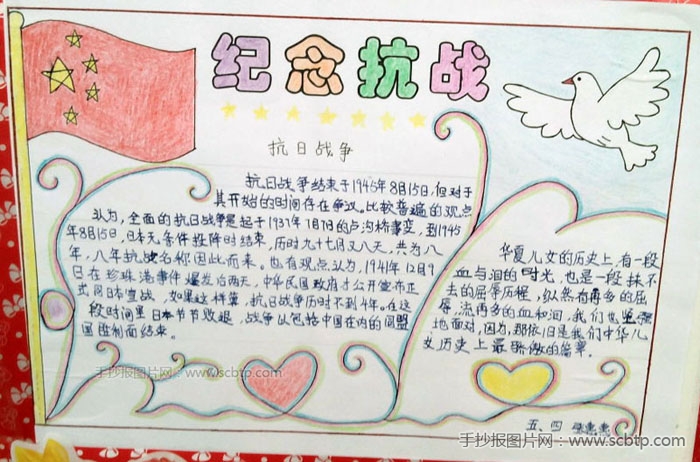 纪念抗战
抗日战争
抗日战争结束于1945年8月15日,但对于
其开始的时间存在争议。比较普遍的观点
认为,全面的抗日战争是起于1937年7月7日的卢沟桥事变,到1945
年8月15日,日本无条件投降时结束,历时九十七月又八天,共为八
年,八年抗战名称因此而来。也有观点认为,1941年12月9
日在珍珠港事件爆发后两天,中华民国政府才公开宣布正
式向日本宣战,如果这样算,抗日战争历时不到4年。在这
段时间里日本节节败退,战争以包括中国在内的同盟
国胜利而结束。
华夏儿女的历史上,有一段
血与泪的时光,也是一段抹不
去的屈辱历程,纵然有再多的屈
辱,流再多的血和泪,我们也坚强
地面对,因为,那依旧是我们中华儿
女历史上最骄傲的篇章.
手抄报图片网:www.scbtp.com
五、四
手抄报图片网:www.scbtp.com